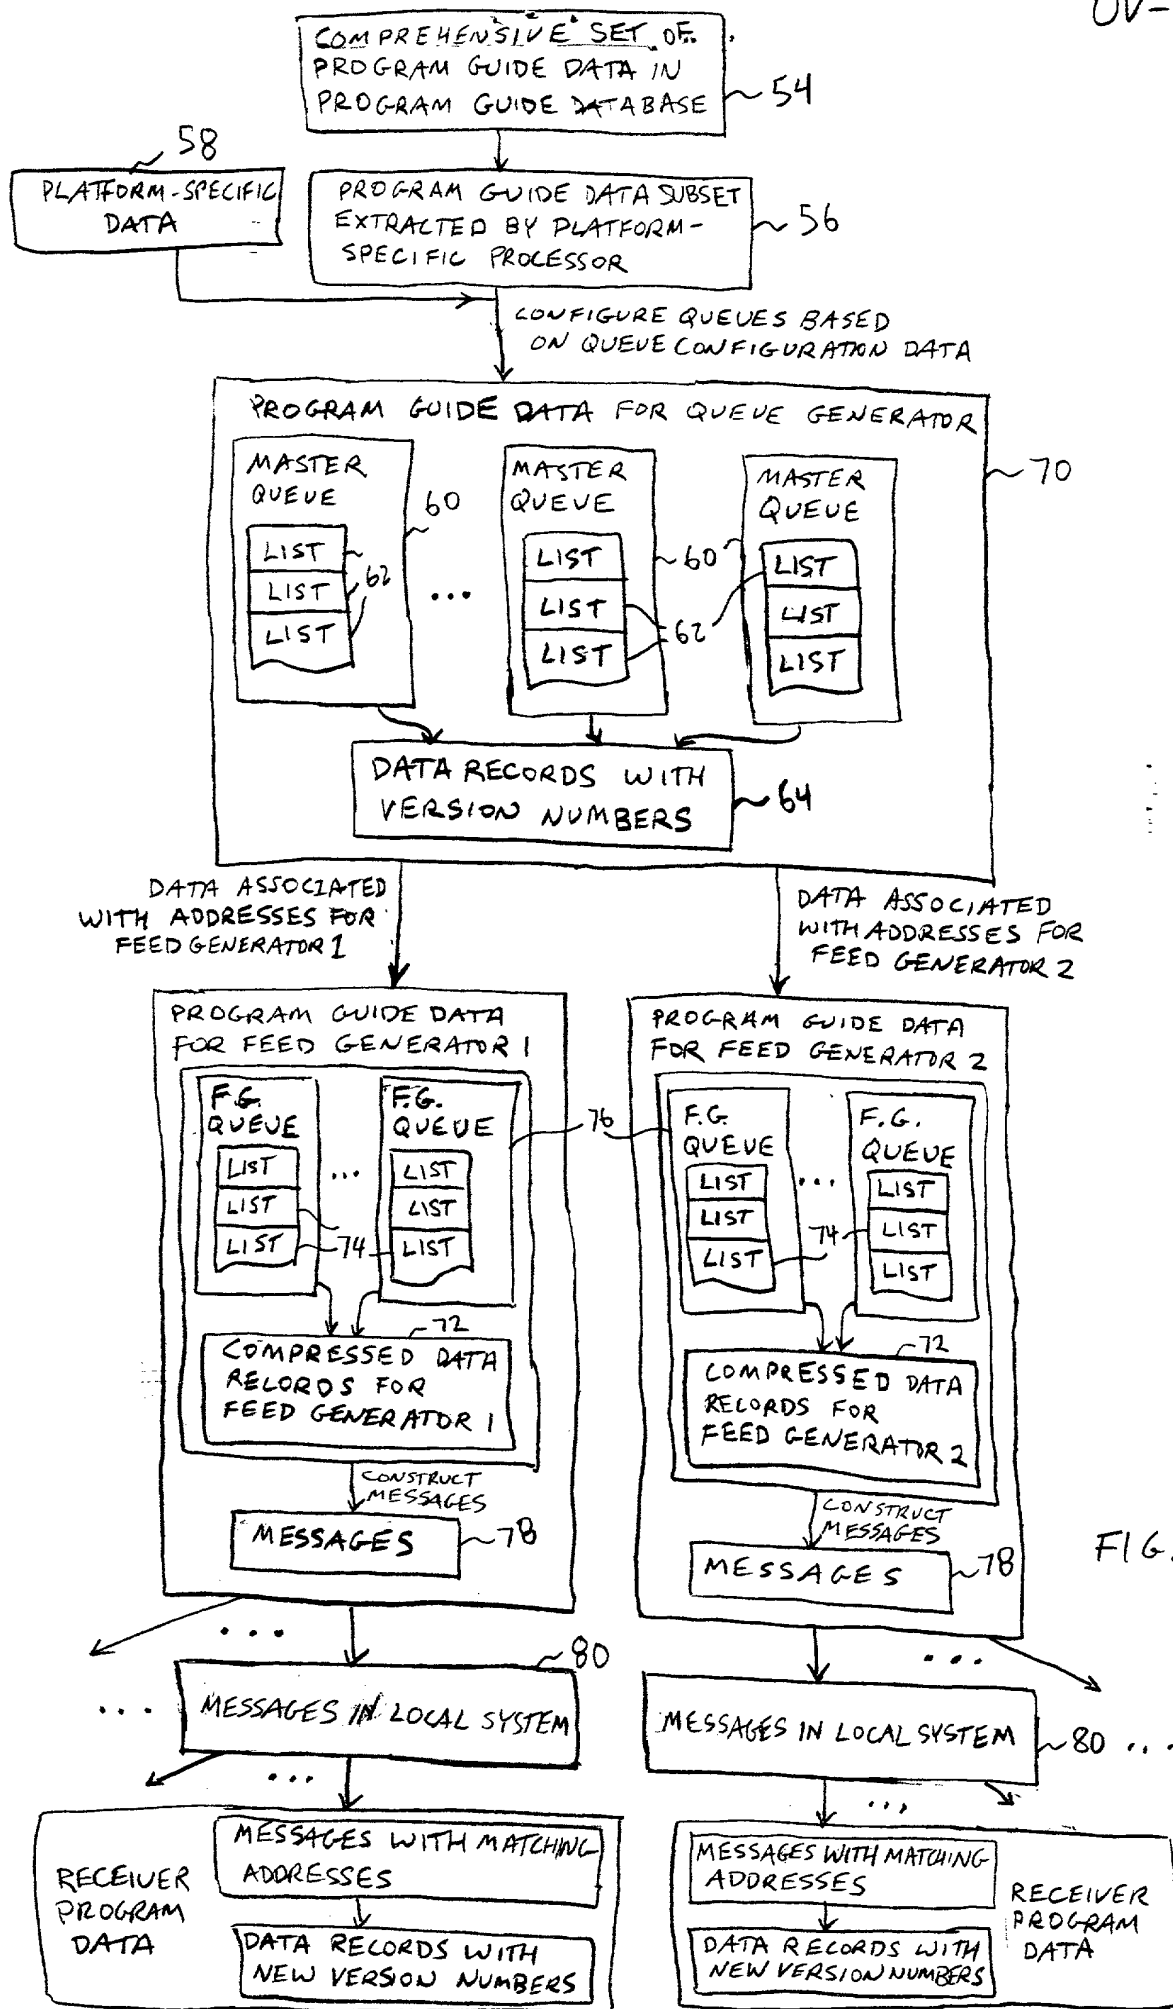 UV-
COMPREHENSIVE SET OF
PROGRAM GUIDE DATA IN
PROGRAM GUIDE DATABASE
54
58
PLATFORM-SPECIFIC
DATA
PROGRAM GUIDE DATA SUBSET
EXTRACTED BY PLATFORM-
SPECIFIC PROCESSOR
56
CONFIGURE QUEUES BASED
ON QUEUE CONFIGURATION DATA
PROGRAM GUIDE DATA FOR QUEUE GENERATOR
70
MASTER
QUEUE
60
LIST
LIST
LIST
62
...
MASTER
QUEUE
60
LIST
LIST
LIST
62
MASTER
QUEUE
LIST
LIST
LIST
DATA RECORDS WITH
VERSION NUMBERS
64
DATA ASSOCIATED
WITH ADDRESSES FOR
FEED GENERATOR 1
DATA ASSOCIATED
WITH ADDRESSES FOR
FEED GENERATOR 2
PROGRAM GUIDE DATA
FOR FEED GENERATOR 1
F.G.
QUEUE
LIST
LIST
LIST
...
F.G.
QUEUE
LIST
LIST
LIST
74
76
72
COMPRESSED DATA
RECORDS FOR
FEED GENERATOR 1
CONSTRUCT
MESSAGES
MESSAGES
78
PROGRAM GUIDE DATA
FOR FEED GENERATOR 2
F.G.
QUEUE
LIST
LIST
LIST
...
F.G.
QUEUE
LIST
LIST
LIST
74
72
COMPRESSED DATA
RECORDS FOR
FEED GENERATOR 2
CONSTRUCT
MESSAGES
MESSAGES
78
FIG.
...
80
... MESSAGES IN LOCAL SYSTEM
...
MESSAGES IN LOCAL SYSTEM
80 ...
...
RECEIVER
PROGRAM
DATA
MESSAGES WITH MATCHING
ADDRESSES
DATA RECORDS WITH
NEW VERSION NUMBERS
...
MESSAGES WITH MATCHING
ADDRESSES
DATA RECORDS WITH
NEW VERSION NUMBERS
RECEIVER
PROGRAM
DATA